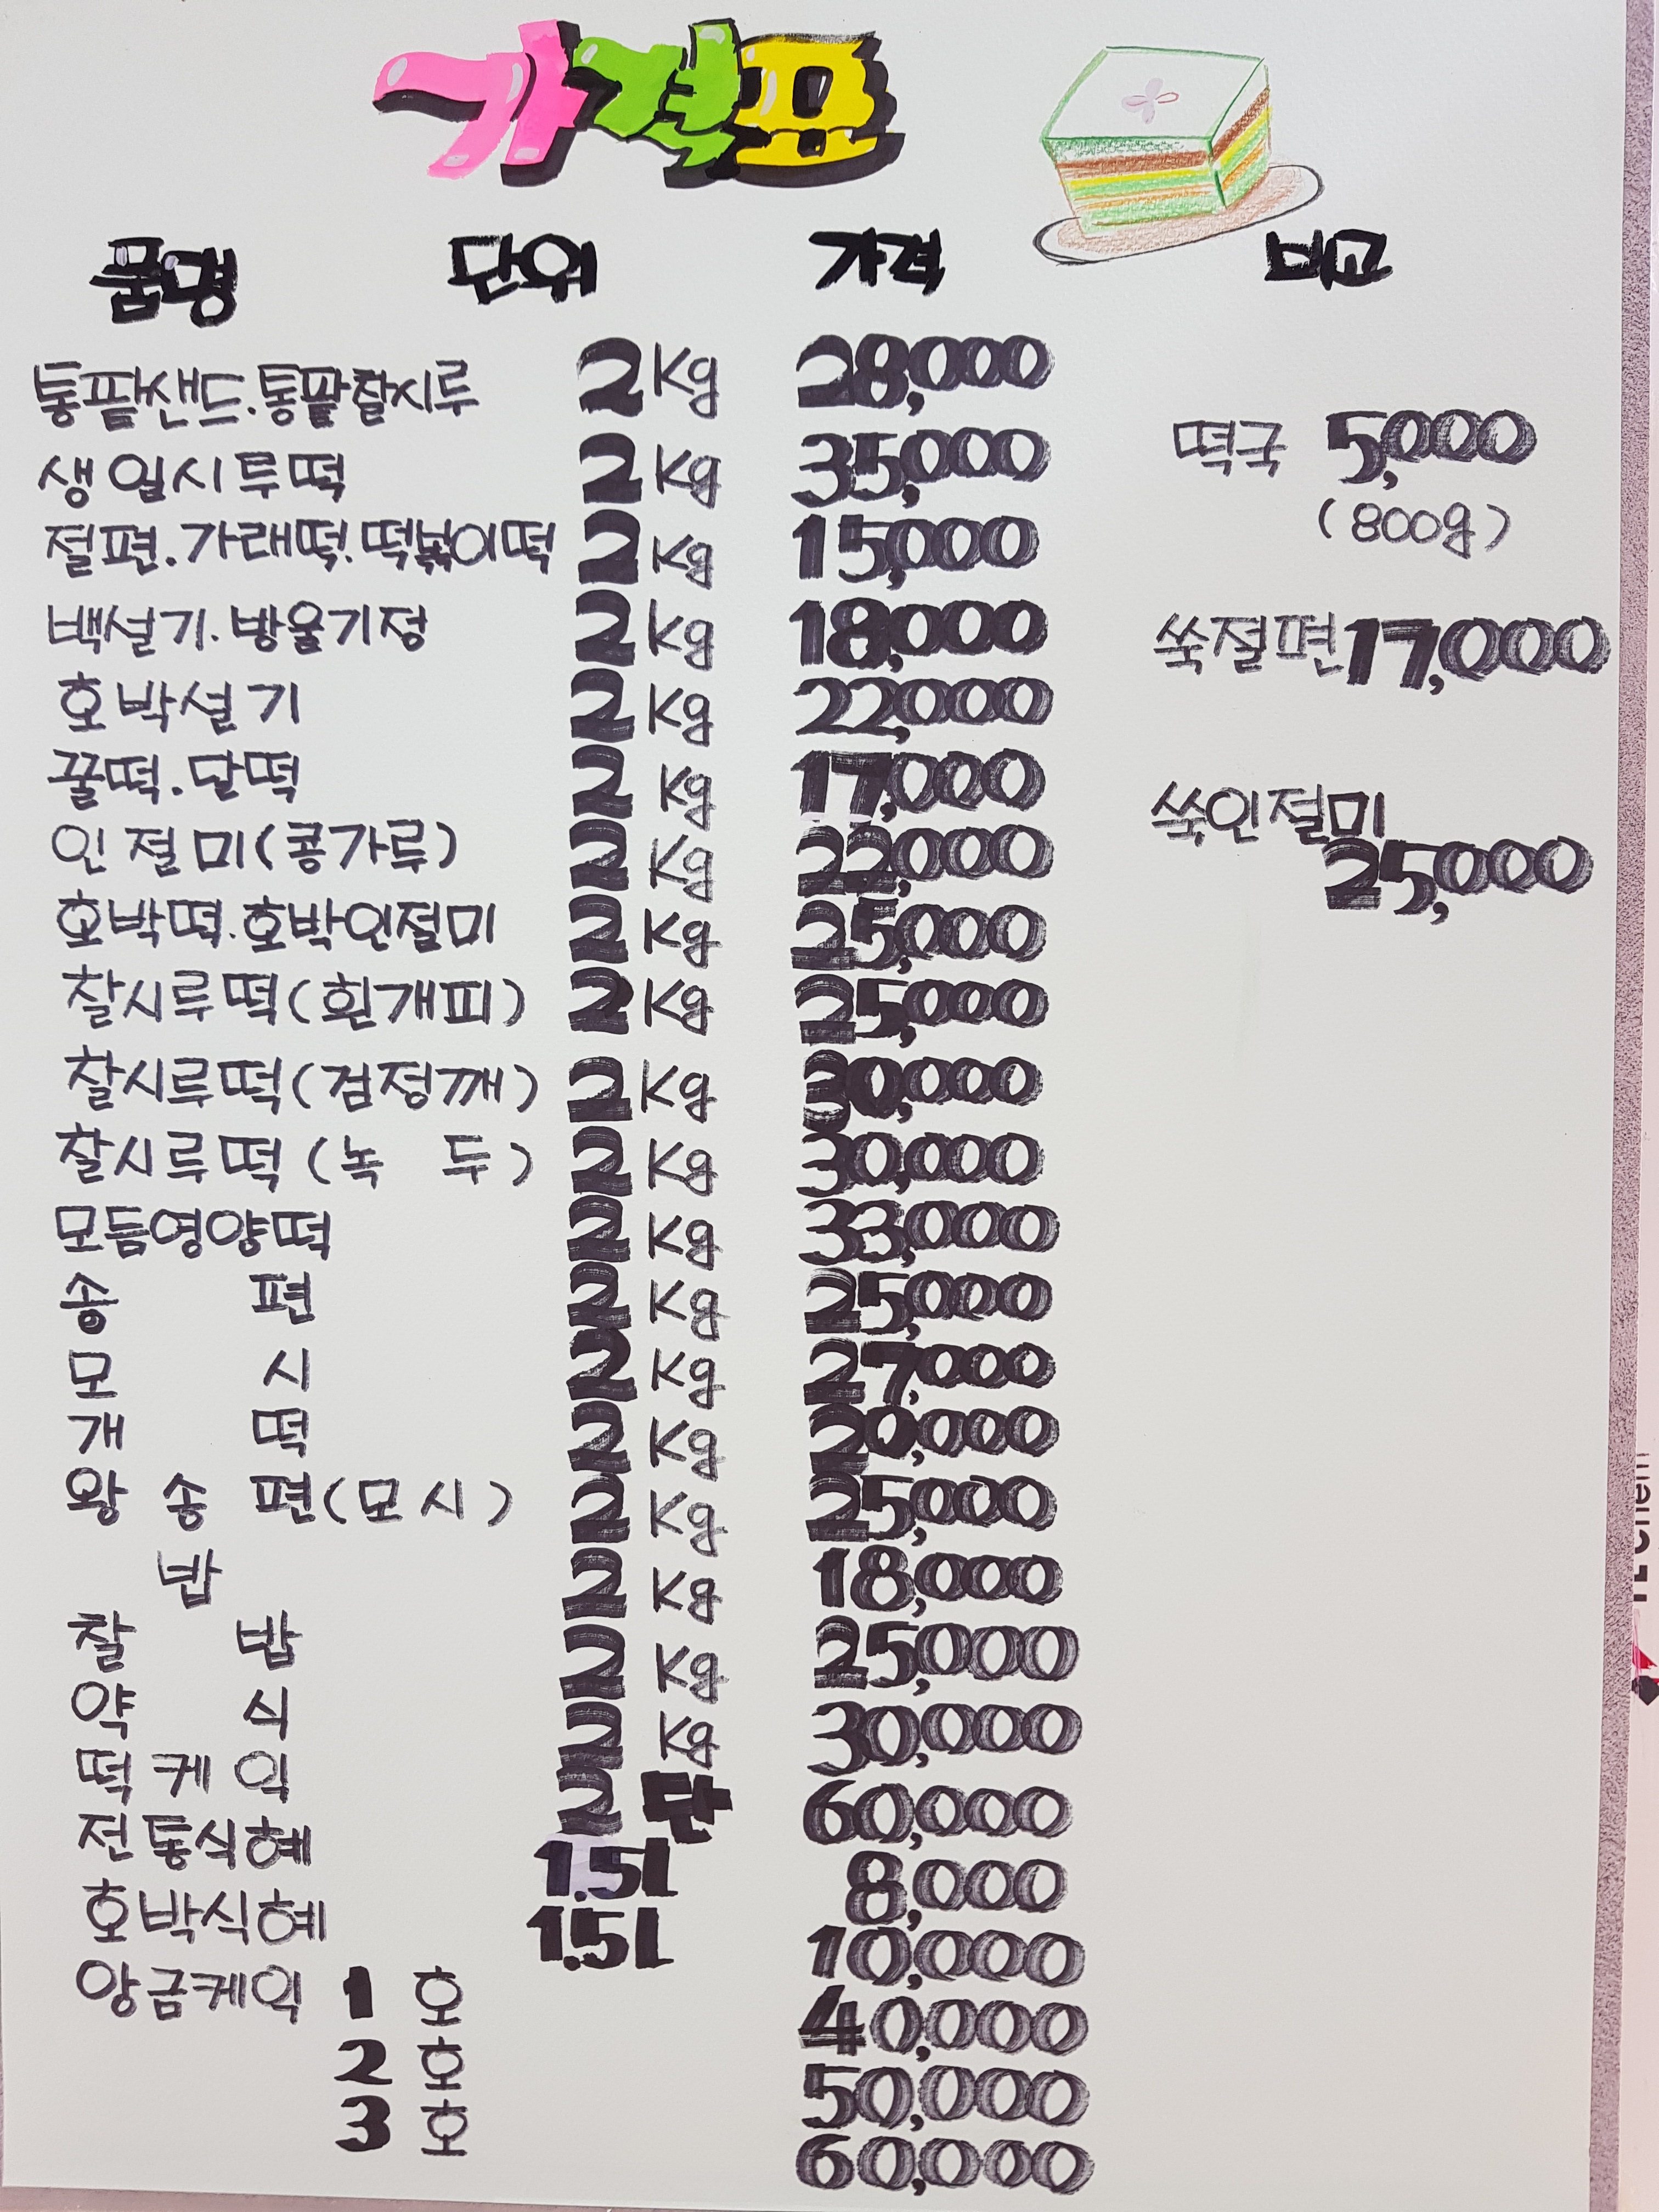 가격표
품명 단위 가격 비고
통팥샌드.통팥찰시루 2Kg 28,000
떡국 5,000
생일시루떡 2Kg 35,000
(800g)
절편.가래떡.떡볶이떡 2Kg 15,000
백설기.방울기정 2Kg 18,000
쑥절편 17,000
호박설기 2Kg 22,000
꿀떡.달떡 2Kg 17,000
쑥인절미
인절미(콩가루) 2Kg 22,000
25,000
호박떡.호박인절미 2Kg 25,000
찰시루떡(흰개피) 2Kg 25,000
찰시루떡(검정깨) 2Kg 30,000
찰시루떡(녹 두) 2Kg 30,000
모듬영양떡 2Kg 33,000
송 편 2Kg 25,000
모 시 2Kg 27,000
개 떡 2Kg 20,000
왕 송 편(모시) 2Kg 25,000
밥 2Kg 18,000
찰 밥 2Kg 25,000
약 식 2Kg 30,000
떡케익 2단 60,000
전통식혜 1.5L 8,000
호박식혜 1.5L 10,000
앙금케익 1호 40,000
2호 50,000
3호 60,000